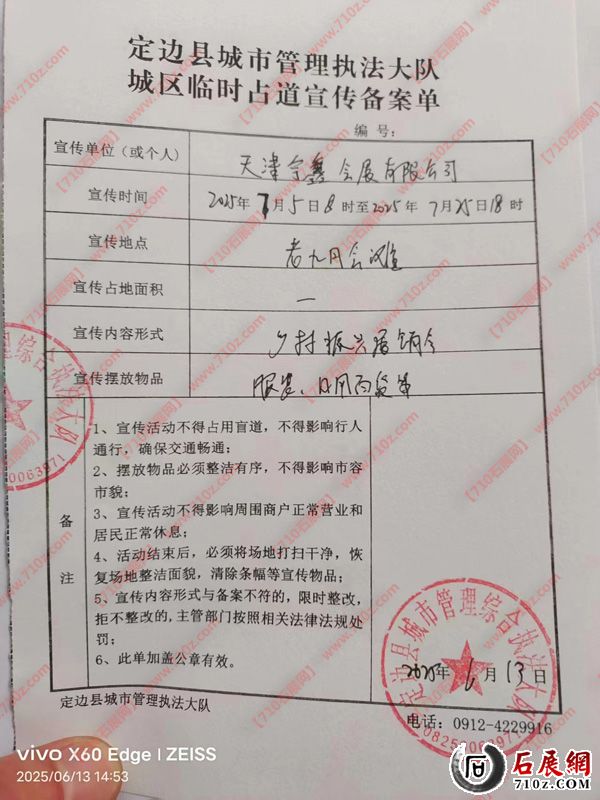 定边县城市管理执法大队
城区临时占道宣传备案单
编 号：
宣传单位（或个人） 天津宁鑫会展有限公司
宣传时间 2025年7月5日8时至2025年7月25日18时
宣传地点 老九月会滩
宣传占地面积 一
宣传内容形式 乡村振兴展销会
宣传摆放物品 服装、日用百货等
备注
1、宣传活动不得占用盲道，不得影响行人
通行，确保交通畅通；
2、摆放物品必须整洁有序，不得影响市容
市貌；
3、宣传活动不得影响周围商户正常营业和
居民正常休息；
4、活动结束后，必须将场地打扫干净，恢
复场地整洁面貌，清除条幅等宣传物品；
5、宣传内容形式与备案不符的，限时整改，
拒不整改的，主管部门按照相关法律法规处
罚；
6、此单加盖公章有效。
定边县城市管理综合执法大队
2025年6月13日
定边县城市管理执法大队
电话：0912-4229916
vivo X60 Edge | ZEISS
2025/06/13 14:53
石展網
710z.com
【710石展网】
www.710z.com